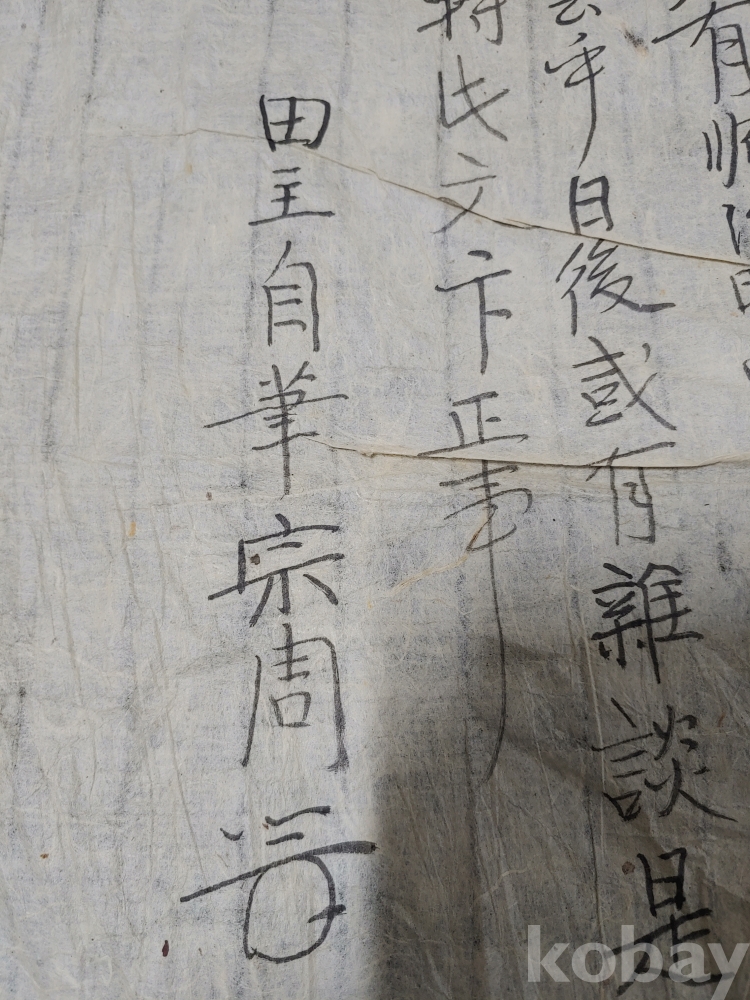 有
乎日後或有雜談是
持此文卞正事
田主自筆宗周
kobay